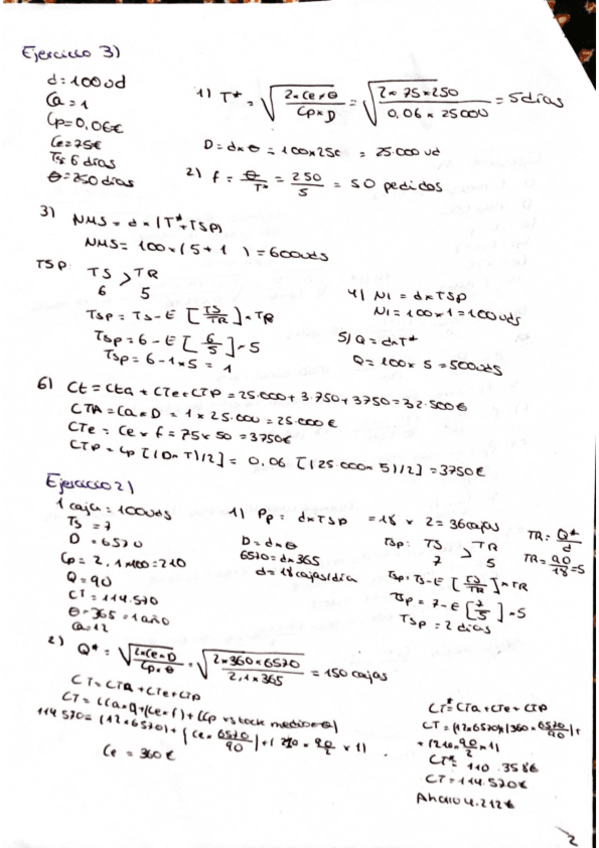 Ejercicio 3)
d = 100 ud
Ca = 1
Cp = 0,06€
Ce = 75€
Ts 6 días
θ = 250 días
1) T* = √(2×Ce×θ / Cp×D) = √(2×75×250 / 0,06×25000) = 5 días
D = d×θ = 100×250 = 25.000 ud
2) f = θ/T* = 250/5 = 50 pedidos
3) NMS = d×(T*+TSP)
NMS = 100×(5+1) = 600uds
TSP: TS > TR
6 5
TSP = TS - E [TS/TR] × TR
TSP = 6 - E [6/5] × 5
TSP = 6 - 1×5 = 1
4) Ni = d×TSP
Ni = 100×1 = 100uds
5) Q = d×T*
Q = 100×5 = 500uds
6) Ct = Cta + CTe + CTP = 25.000 + 3.750 + 3750 = 32.500€
CTA = Ca×D = 1×25.000 = 25.000€
CTe = Ce×f = 75×50 = 3750€
CTP = Cp [(D×T)/2] = 0,06 [(25.000×5)/2] = 3750€
Ejercicio 2)
1 caja = 100uds
Ts = 7
D = 6570
Cp = 2,1×100 = 210
Q = 90
CT = 114.570
θ = 365 = 1 año
Ca = 12
1) Pp = d×TSP = 18 × 2 = 36 cajas
D = d×θ
6570 = d×365
d = 18 cajas/día
TSP: TS > TR
7 5
TSP = TS - E [TS/TR] × TR
TSP = 7 - E [7/5] × 5
TSP = 2 días
TR = Q*/d
TR = 90/18 = 5
2) Q* = √(2×Ce×D / Cp×θ) = √(2×360×6570 / 2,1×365) = 150 cajas
CT = CTA + CTe + CTP
CT = (Ca×Q + (Ce×f) + (Cp × stock medio×θ)
114.570 = (12×6570) + (Ce × 6570/90) + (210 × 90/2 × 1)
Ce = 360€
CT* = CTa + CTe + CTP
CT = (12×6570) + (360 × 6570/90) +
+ (210 × 90/2 × 1)
CT* = 110.358€
CT = 114.570€
Ahorro 4.212€
2